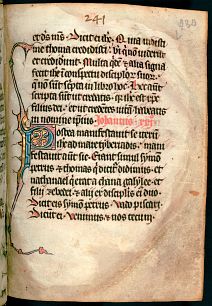 241
et dñs m̃s · Dicit ei ihc̃ · Quia vidisti
me thoma credidisti · bt̃i qui nõ viderũt
et crediderũt · Multa qͥdẽ et alia signa
fecit ihc̃ ĩ conspectu discipłoꝝ suoꝝ ·
que nõ sũt scͥpta in libro hoc · hec aũt
scͥpta sũt ut credatis · qꝛ ihc̃ ẽ xp̃c
filius dei · et ut credẽtes vitã habeatis
in nomine ipsius · Johannis
Postea manifestavit se iterũ
ihc̃ ad mare tyberiadis · mani
festavit aũt sic · Erant simul symõ
petrus · et thomas qͥ dicit̃ didimus · et
nathanael qͥ erat a chana galylee · et
filij zebedei · et alij ex discipłis eiꝰ duo ·
Dicit eis symõ petrus · Vado piscari ·
Dicũt ei · Venimus et nos tecum ·